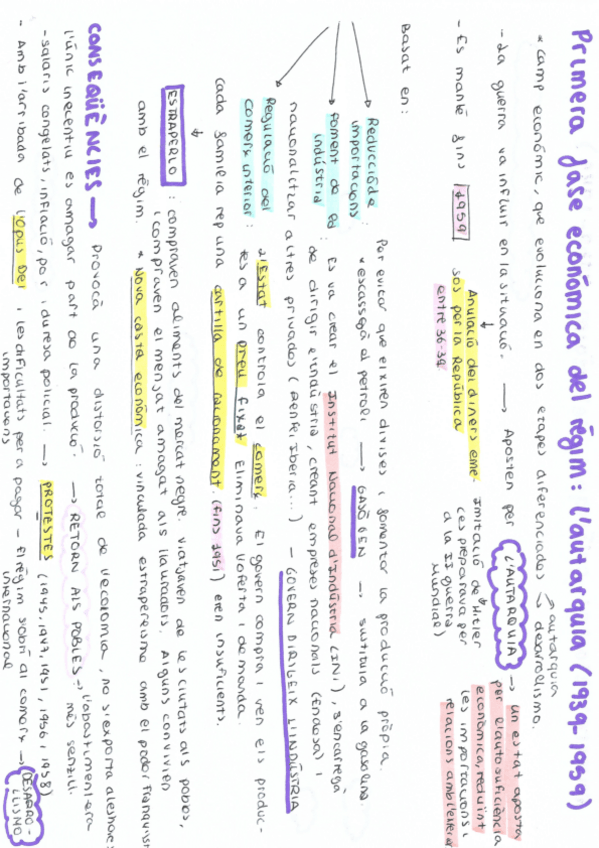 Primera fase econòmica del règim: l'autarquia (1939-1959)
* camp econòmic, que evoluciona en dos etapes diferenciades → autarquia
↘ desarrollismo.
- La guerra va influir en la situació. → Aposten per L'AUTARQUIA → un estat aposta
per l'autosuficiència
econòmica, reduint
les importacions i
relacions amb l'exterior
Imitació de Hitler
(es preparava per
a la II guerra
Mundial)
- Es manté fins 1959
Anulació dels diners eme-
sos per la República
entre 36-39
Basat en:
Reducció de importacions : Per evitar que eixiren divises i fomentar la producció pròpia.
* escassegà el petroli → GASÒGEN → sustituïa a la gasolina
Foment de la indústria : Es va crear el Institut Nacional d'Indústria (INI), s'encarregà
de dirigir l'indústria, creant empreses nacionals (Endesa) i
nacionalitzar altres privades (Renfe i Iberia...) - GOVERN DIRIGEIX L'INDÚSTRIA
Regulació del comerç interior : L'Estat controla el comerç. El govern compra i ven els produc-
tes a un preu fixat. Eliminava l'oferta i demanda.
cada família rep una cartilla de racionament. (fins 1951) eren insuficients.
ESTRAPERLO : compraven aliments del mercat negre. Viatjaven de les ciutats als pobles,
i compraven el menjar amagat als llauradors. Alguns convivien
amb el règim. * Nova casta econòmica: vinculada estraperlisme amb el poder franquista
CONSEQÜÈNCIES → Provocà una distorsió total de l'economia, no s'exporta aleshores:
l'únic incentiu es amagar part de la producció. → RETORN ALS POBLES → l'abastiment era
més senzill.
- salaris congelats, inflació, por i duresa policial. → PROTESTES (1945, 1947, 1951, 1956, 1958)
- Amb l'arribada de l'Opus Dei i les dificultats per a pagar - el règim s'obri al comerç → DESARRO-
LLISMO
importacions
internacional